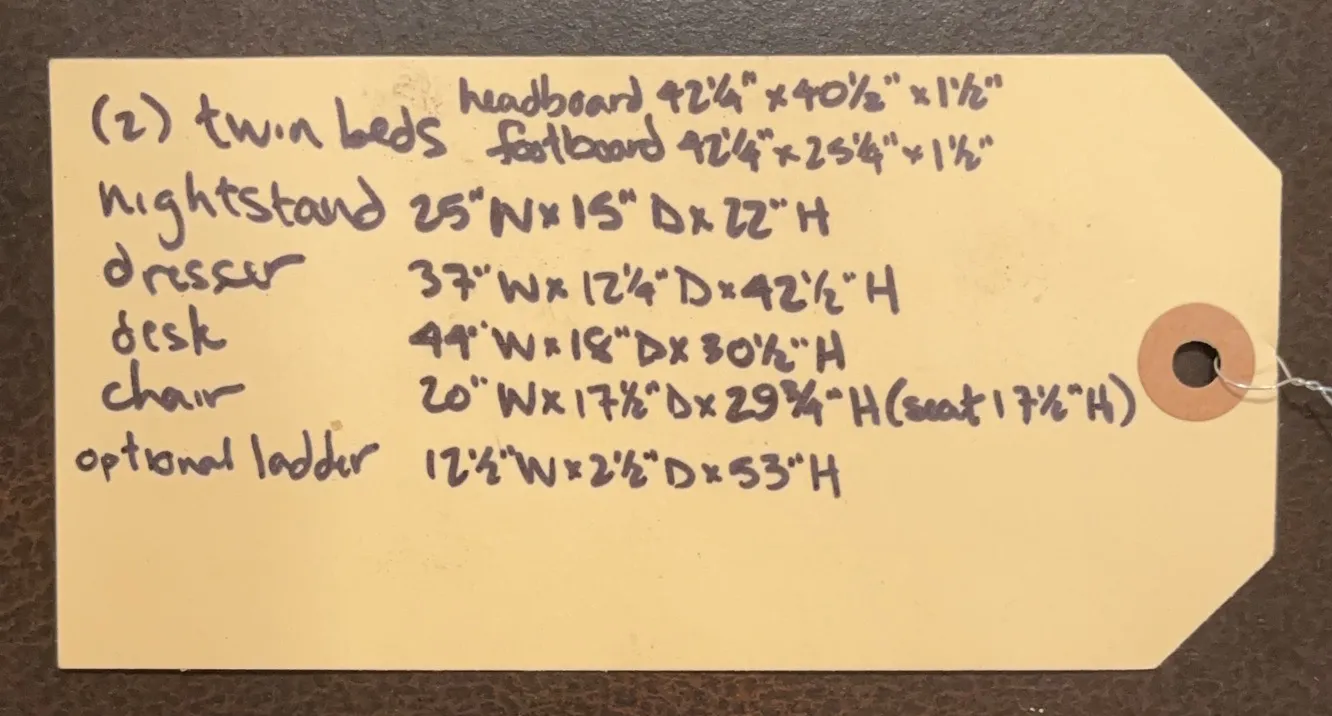 (2) twin beds headboard 42¼" x 40½" x 1½"
footboard 42¼" x 25¼" x 1½"
nightstand 25" W x 15" D x 22" H
dresser 37" W x 12¼" D x 42½" H
desk 44" W x 18" D x 30½" H
chair 20" W x 17½" D x 29¾" H (seat 17½" H)
optional ladder 12½" W x 2½" D x 53" H